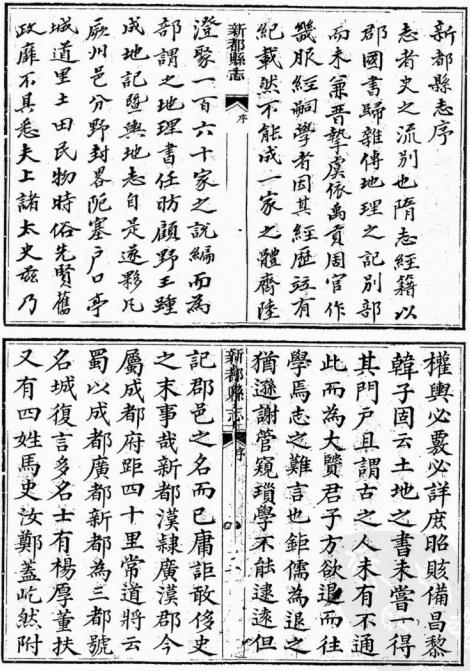 新都縣志序
志者史之流別也隋志經籍以
郡國書歸雜傳地理之記別部
而未兼晉摯虞依禹貢周官作
畿服經嗣學者因其經歷竝有
紀載然不能成一家之體齊陸
新都縣志 序
澄聚一百六十家之說編而為
部謂之地理書任昉顧野王踵
成地記暨輿地志自是遂夥凡
厥州邑分野封畧阨塞戶口亭
城道里土田民物時俗先賢舊
政靡不具悉夫上諸太史玆乃
權輿必覈必詳庶昭賅備昌黎
韓子固云土地之書未嘗一得
其門戶且謂古之人未有不通
此而為大贒君子方欲退而往
學焉志之難言也鉅儒為退之
猶遜謝管窺瑣學不能逮遠但
新都縣志 序 二
記郡邑之名而已庸詎敢侈史
之末事哉新都漢隸廣漢郡今
屬成都府距四十里常道將云
蜀以成都廣都新都為三都號
名城復言多名士有楊厚董扶
又有四姓馬史汝鄭蓋屹然附